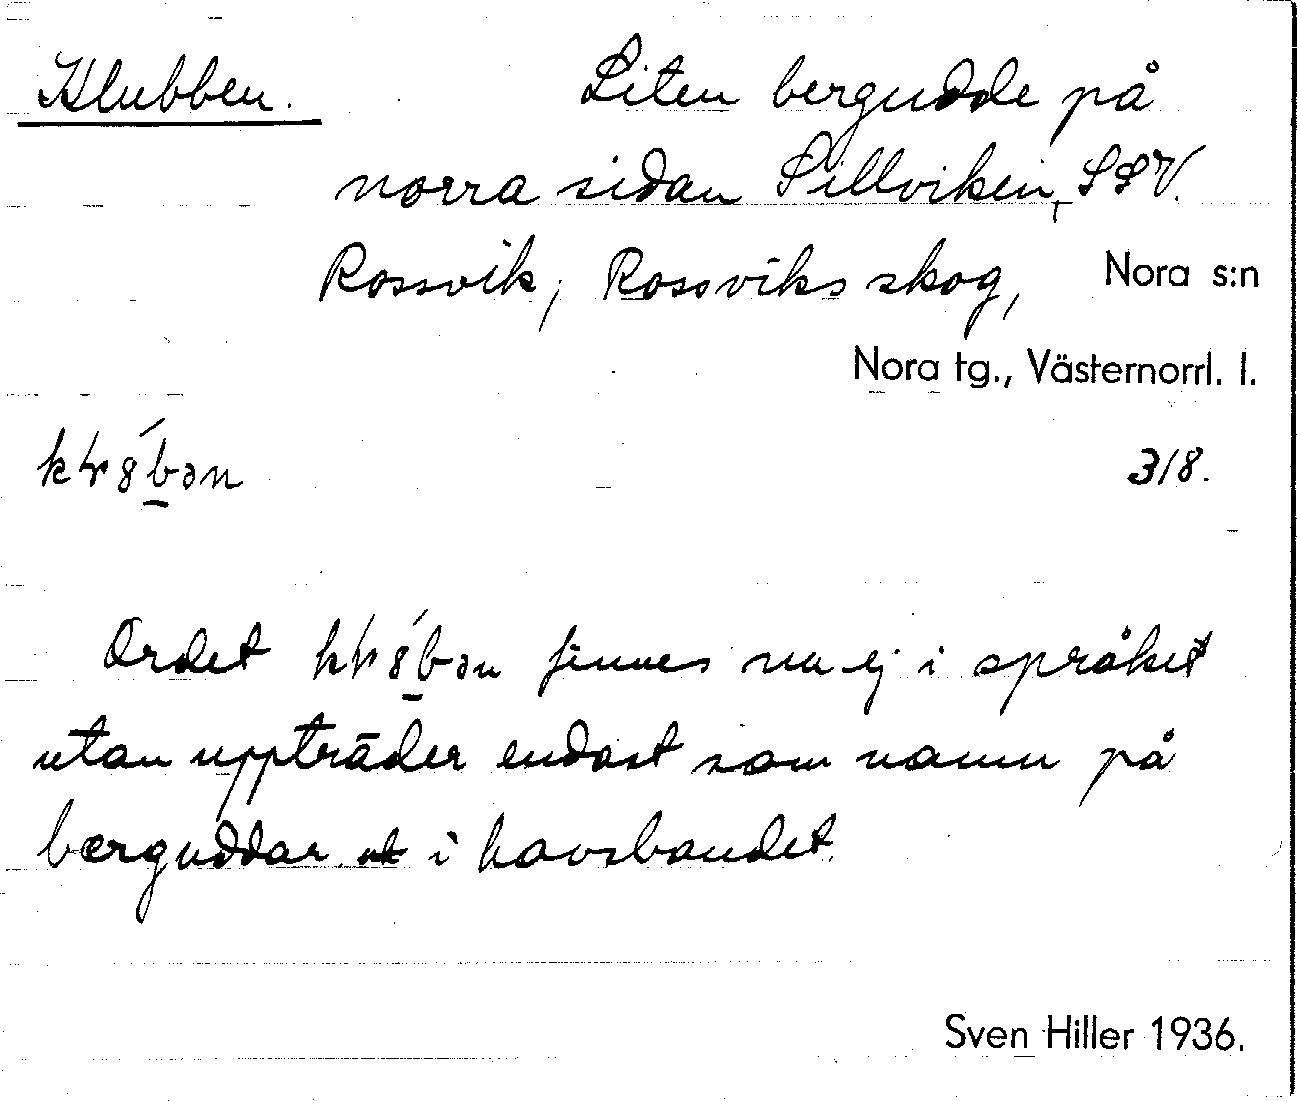 Klubben. Liten bergudde på
norra sidan Sillviken, SSV.
Rossvik, Rossviks skog, Nora s:n
Nora tg., Västernorrl. l.
318.
Ordet finnes nu ej i språket
utan uppträder endast som namn på
berguddar ut i havsbandet.
Sven Hiller 1936.